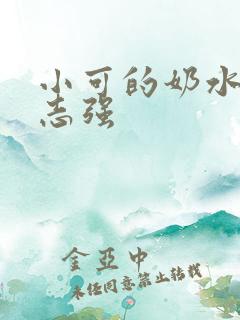 小可的奶水
志强
金亞中
未经同意禁止转载